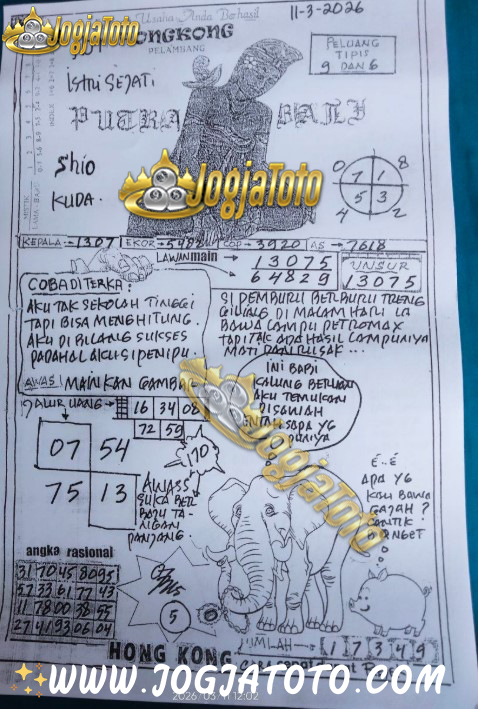 Usaha Anda Berhasil
11-3-2026
JOGJATOTO
HONGKONG
PELAMBANG
PELUANG
TIPIS
9 DAN 6
ISTRI SEJATI
PUTRA BALI
Shio
KUDA.
JOGJATOTO
0 8
7 1
5 3
4 2
KEPALA → 1307 EKOR → 5482 COP → 3920 AS → 7618
LAWAN main
13075
64829
UNSUR
13075
COBA DI TERKA:
AKU TAK SEKOLAH TINGGI
TAPI BISA MENGHITUNG.
AKU DI BILANG SUKSES
PADAHAL AKU SI PENIPU.
SI PEMBURU BERBURU TRENG
GILING DI MALAM HARI IA
BAWA LAMPU PETROMAX
TAPI TAK ADA HASIL LAMPUNYA
MATI DAN RUSAK...
AWAS! MAINKAN GAMBAR
INI BABI
KALUNG BERLIAN
AKU TEMUKAN
DISAWAH
SAPA YG
PUNYA
ALUR UANG
16 34 08
72 59
170
07 54
75 13
AWASS
SUKA BER
BARU TA-
NGAN
PANJANG.
JOGJATOTO
É..É
APA YG
KAU BAWA
GAJAH?
CANTIK
BANGET
angka rasional
31 70 45 80 95
57 33 61 77 43
11 78 00 38 55
27 41 93 06 04
5
HONG KONG
JUMLAH → 1 7 3 4 9
WWW.JOGJATOTO.COM